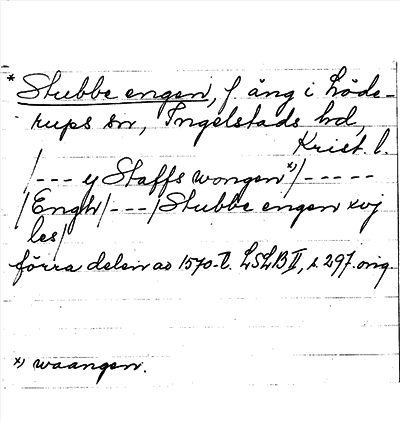 * Stubbe engen, f. äng i Löde-
rups sn, Ingelstads hd,
Krist. l.
/--- y Staffs wongen x)/-----
/Engh/---/Stubbe engen xvj
les/
förra delen av 1570-t. LSLB II, s. 297. orig.
x) waangen.